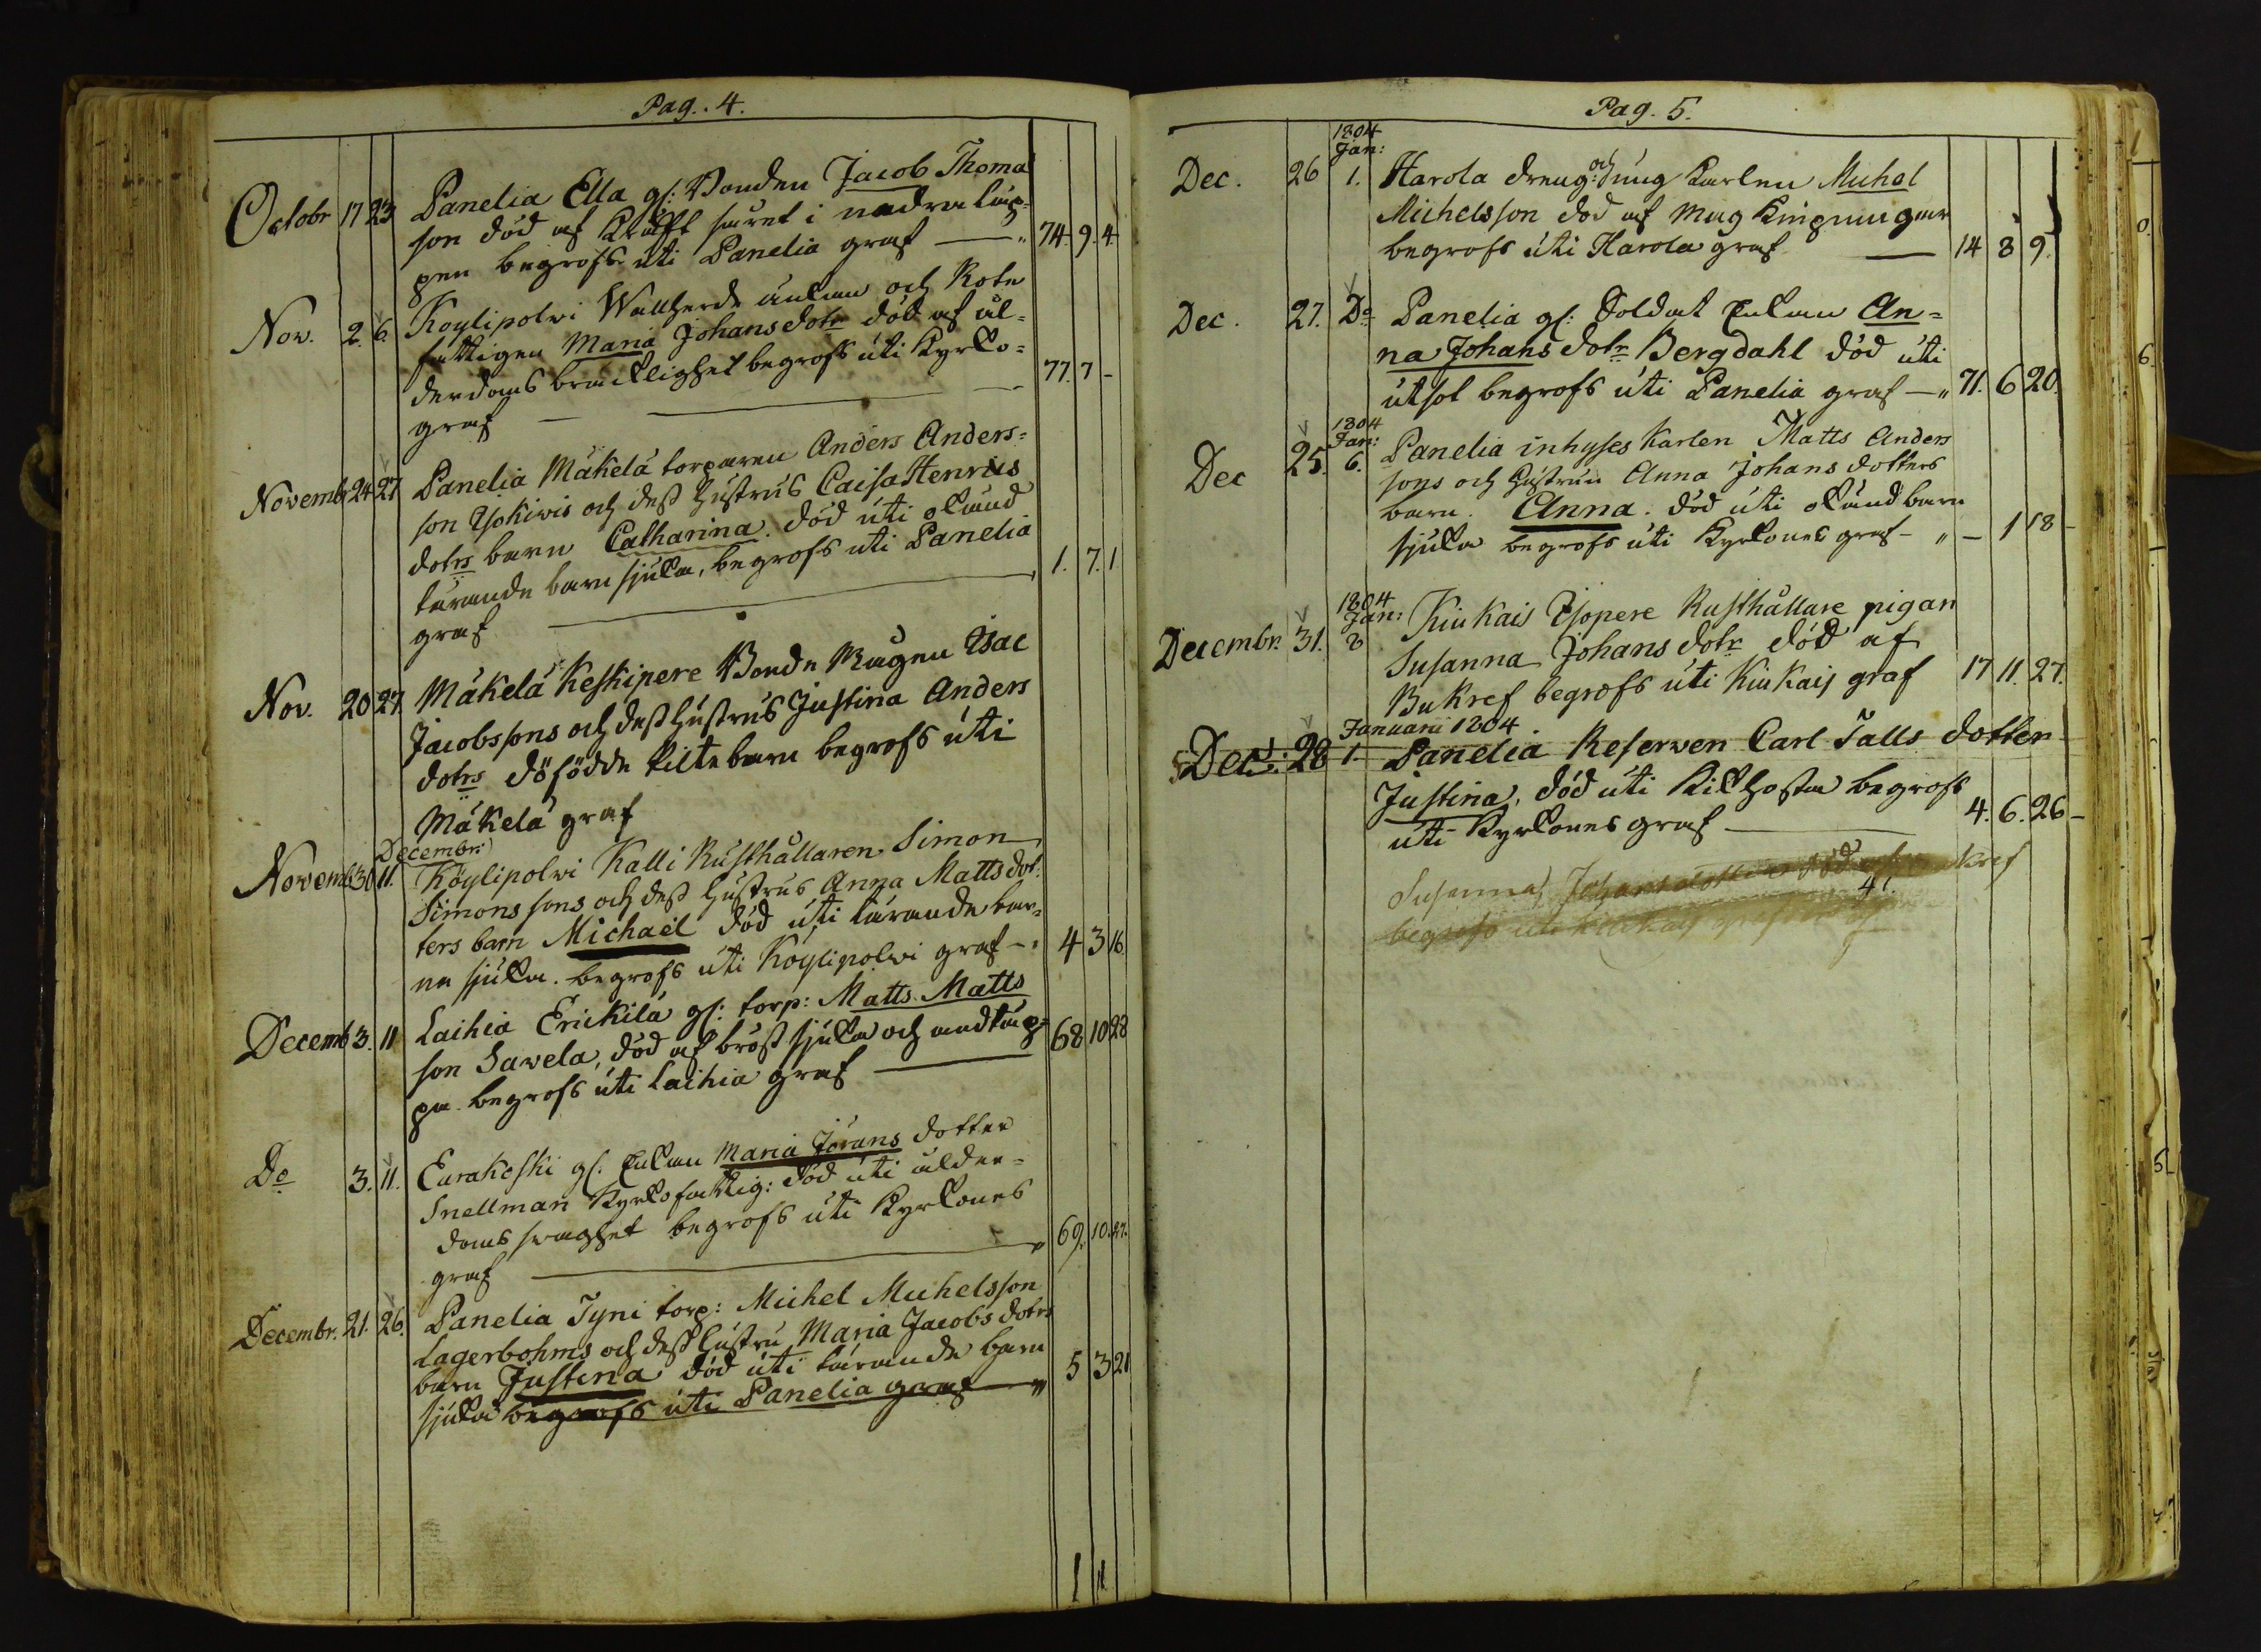 Pag. 4.
Octobr 17 23 Panelia Ella gl: Bonden Jacob Thoma
son död af Kräfft såret i nedra läp-
pen begrofs uti Panelia graf — " 74. 9. 4.
Nov. 2. 6. Köylipolvi Wallherde änkan och Rote
fattigen Maria Johansdotr död af ål-
derdoms bräcklighet begrofs uti Kyrko-
graf — 77. 7 -
Novembr 24 27 Panelia Mäkelä torparen Anders Anders-
son Isokivis och dess hustrus Caisa Henrics
dotrs barn Catharina. död uti okänd
tärande barn sjuka, begrofs uti Panelia
graf — 1. 7. 1.
Nov. 20 27. Mäkelä Keskipere Bonde Mågen Isac
Jacobssons och dess hustrus Justina Anders
dotrs döfödde Pilte barn begrofs uti
Mäkelä graf
Decembr:
Novemb 30 11. Köylipolvi Kalli Rusthållaren Simon
Simonssons och dess hustrus Anna Matts dot-
ters barn Michael död uti tärande bar-
na sjuka. begrofs uti Köylipolvi graf - " 4 3 16
Decemb 3. 11 Laihia Erickilä gl: torp: Matts Matts
son Sawela, död af bröst sjuka och andtäp-
pa begrofs uti Laihia graf — 68 10 28
Do 3. 11. Eurakoski gl. Enkan Maria Jörans dotter
Snellman Kyrkofattig: död uti ålder-
doms swaghet begrofs uti Kyrkones
graf — " 69. 10. 27.
Decembr. 21. 26. Panelia Tyni torp: Michel Michelsson
Lagerbohms och dess hustru Maria Jacobs dotrs
barn Justina död uti tärande barn
sjuka begrofs uti Panelia graf — " 5 3 21
Pag. 5.
1804
Jan:
Dec. 26 1. Harola dreng: och Jung Karlen Michel
Michelsson död af
begrofs uti Harola graf — 14 8 9.
Dec. 27. Do Panelia gl: Soldat Enkan An-
na Johans dotr Bergdahl död uti
utsot begrofs uti Panelia graf — " 71. 6 20.
1804
Jan:
Dec 25. 6. Panelia inhyses Karlen Matts Anders
sons och hustrun Anna Johans dotters
barn. Anna. död uti okänd barn
sjuka begrofs uti Kyrkones graf - " - 1 18 -
1804
Jan:
Decembr. 31. 8 Kiukais Isopere Rusthållare pigan
Susanna Johans dotr död af
Bukref begrofs uti Kiukais graf 17 11. 27.
Januarii 1804
Dec: 28 1. Panelia Reserven Carl Talls dotter
Justina, död uti Kikhosta begrofs
uti Kyrkones graf — 4. 6. 26 -
Susanna Johans dotter död af kref
41.
begrofs uti Kiukais graf